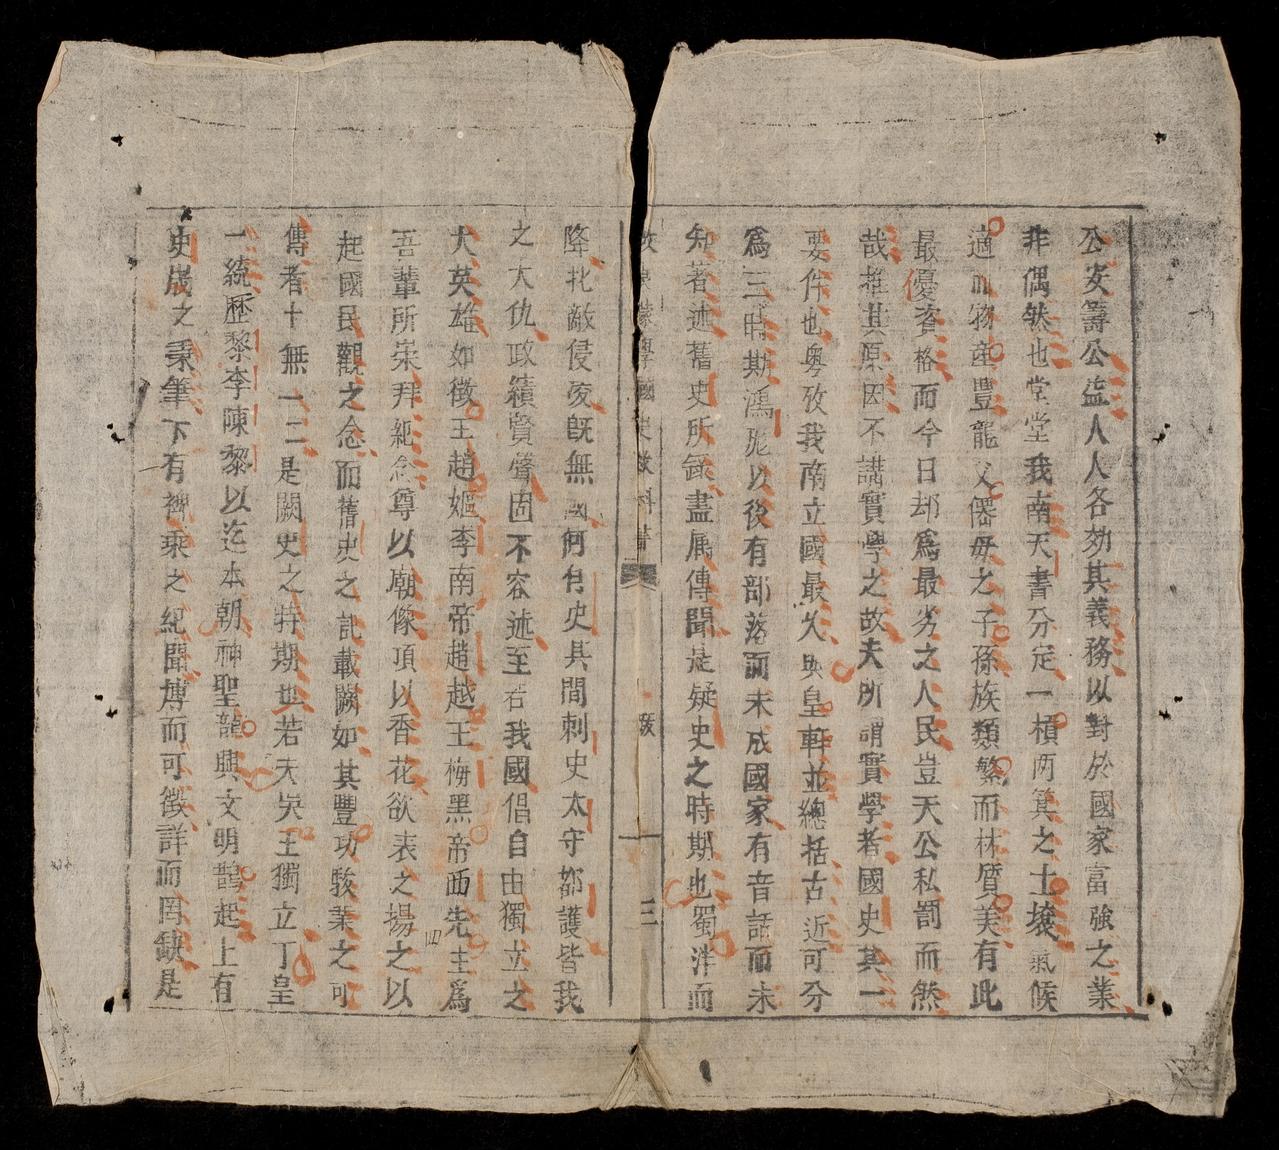 公安籌公益人人各効其義務以對於國家富強之業
非偶然也堂堂我南天書分定一樻两箕之土壌氣候
適而物産豊龍父僊母之子孫族類繁而林質美有此
最優資格而今日却爲最劣之人民豈天公私罰而然
哉推其原因不講實學之故夫所謂實學者國史其一
要件也粤攷我南立國最久與皇軒並總括古近可分
爲三時期鴻厖以後有部落而未成國家有音話而未
知著述舊史所錄盡属傳聞是疑史之時期也蜀泮而
國史教科書
三
降北敵侵夌旣無國何有史其間刺史太守都護皆我
之大仇政績賢聲固不容述至若我國倡自由獨立之
大英雄如徵王趙嫗李南帝趙越王梅黑帝西先主爲
吾輩所崇拜紀念尊以廟像項以香花欲表之揚之以
起國民觀之念而舊史之記載闕如其豐功駿業之可
傳者十無一二是闕史之特期也若夫吳王獨立丁皇
一統歷黎李陳黎以迄本朝神聖龍興文明鵲起上有
史宬之秉筆下有裨乘之紀聞博而可徵詳而罔缺是